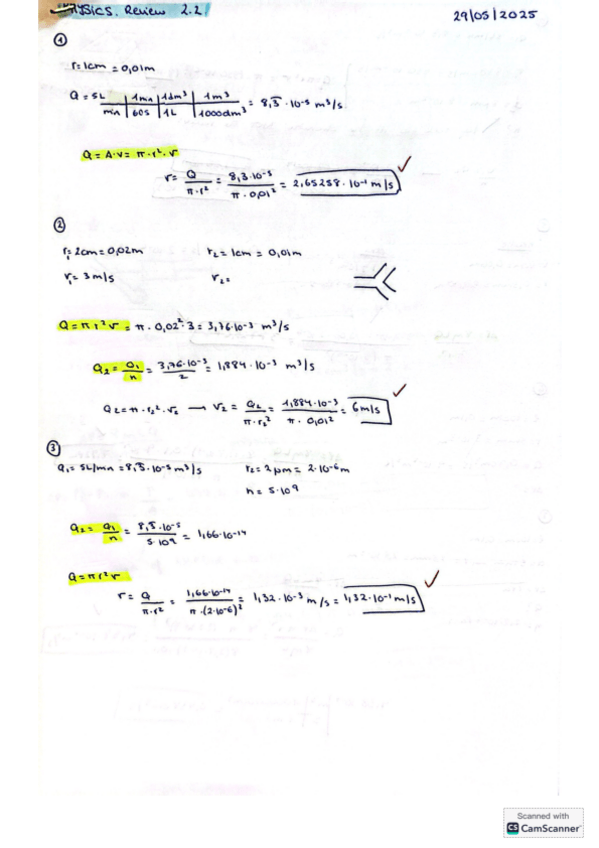 PHYSICS. Review 2.2
29/05/2025
①
r=1cm = 0,01m
Q = 5L/min | 1min/60s | 1dm³/1L | 1m³/1000dm³ = 8,3̄·10⁻⁵ m³/s
Q = A·v = π·r²·v
v = Q/π·r² = 8,3·10⁻⁵/π·0,01² = 2,65258·10⁻¹ m/s ✓
②
r₁= 2cm = 0,02m r₂= 1cm = 0,01m
v₁= 3m/s v₂=
Q = π r² v = π·0,02²·3 = 3,76·10⁻³ m³/s
Q₂ = Q₁/n = 3,76·10⁻³/2 = 1,884·10⁻³ m³/s
Q₂ = π·r₂²·v₂ → v₂ = Q₂/π·r₂² = 1,884·10⁻³/π·0,01² = 6m/s ✓
③
Q₁= 5L/min = 8,3̄·10⁻⁵ m³/s r₂= 2μm = 2·10⁻⁶m
n = 5·10⁹
Q₂ = Q₁/n = 8,3̄·10⁻⁵/5·10⁹ = 1,66·10⁻¹⁴
Q = π r² v
v = Q/π·r² = 1,66·10⁻¹⁴/π·(2·10⁻⁶)² = 1,32·10⁻³ m/s = 1,32·10⁻¹ m/s ✓
Scanned with
CS CamScanner